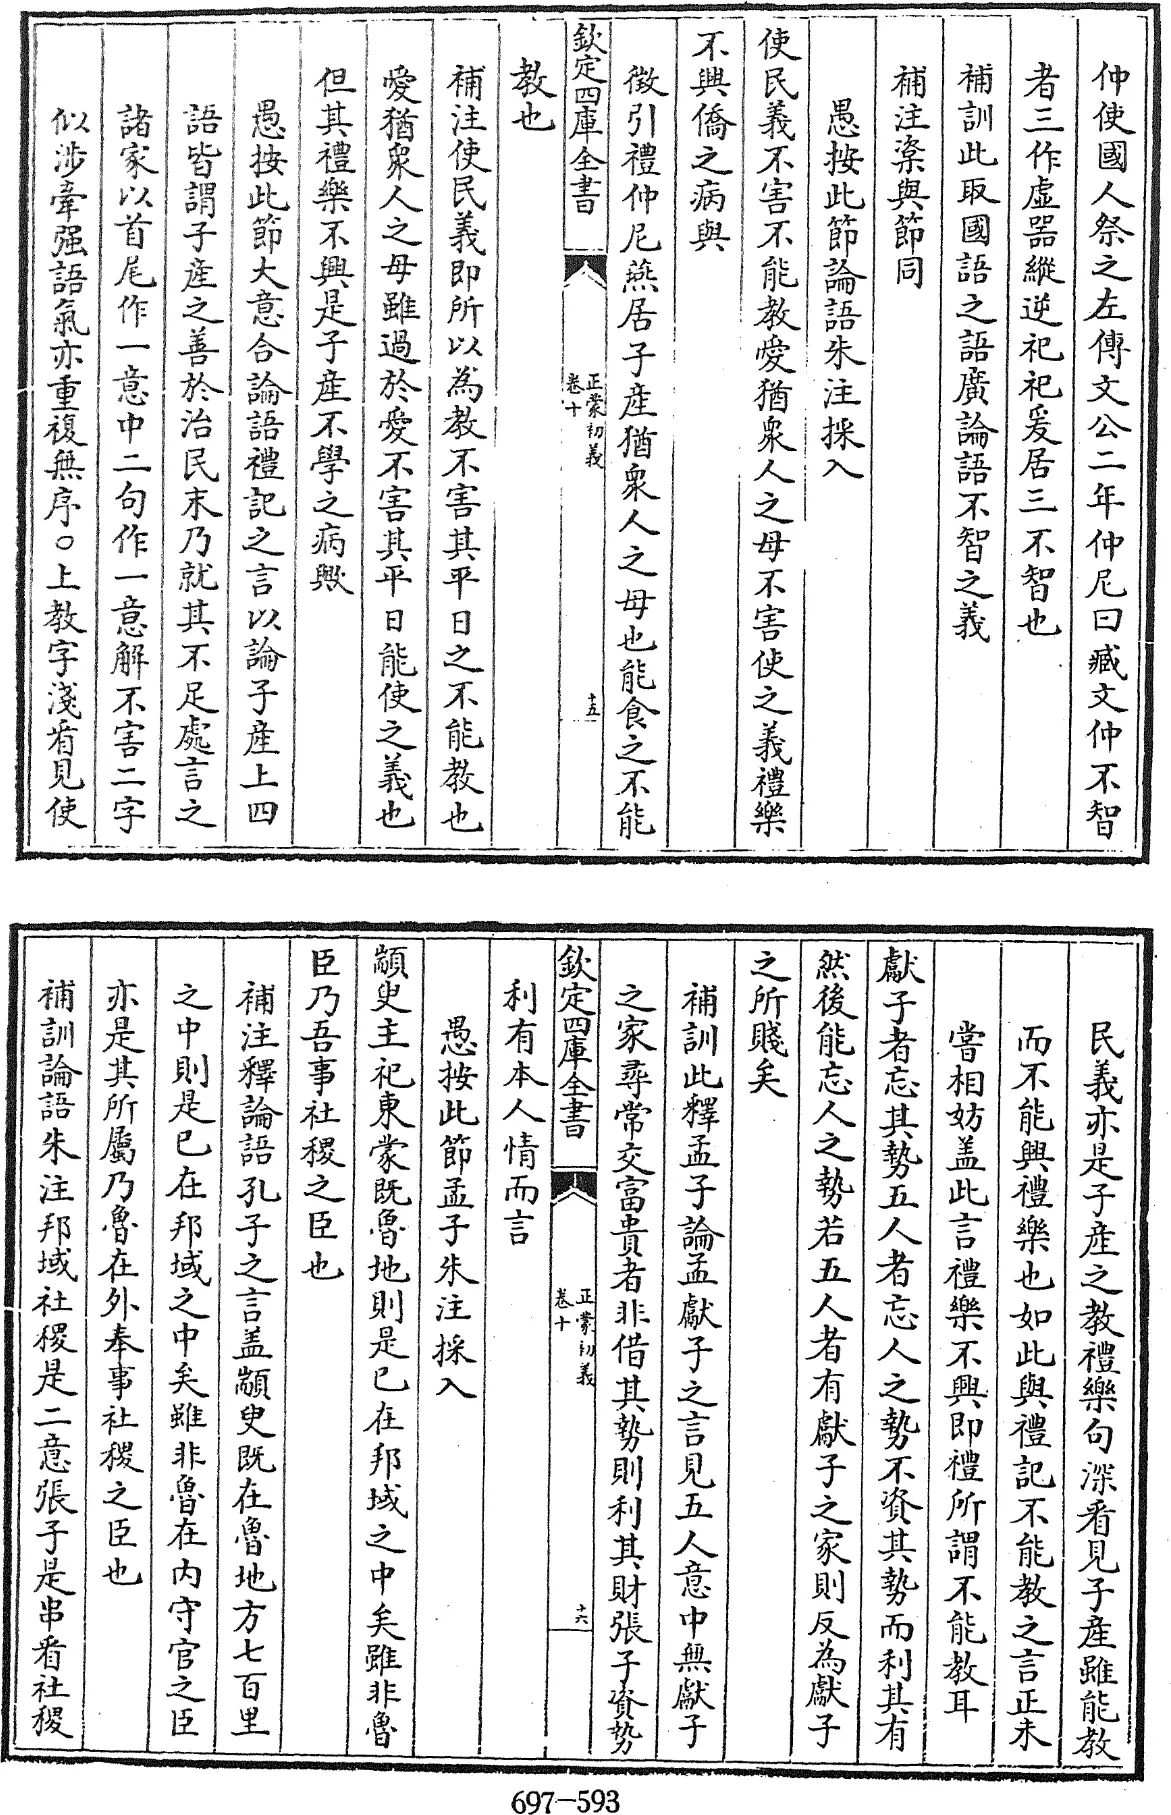 仲使國人祭之左傳文公二年仲尼曰臧文仲不智
者三作虛器縱逆祀祀爰居三不智也
補訓此取國語之語廣論語不智之義
補注楶與節同
愚按此節論語朱注採入
使民義不害不能教愛猶衆人之母不害使之義禮樂
不興僑之病與
徵引禮仲尼燕居子產猶衆人之母也能食之不能
欽定四庫全書
正蒙初義
卷十
十五
教也
補注使民義即所以為教不害其平日之不能教也
愛猶衆人之母雖過於愛不害其平日能使之義也
但其禮樂不興是子產不學之病歟
愚按此節大意合論語禮記之言以論子產上四
語皆謂子產之善於治民末乃就其不足處言之
諸家以首尾作一意中二句作一意解不害二字
似涉牽强語氣亦重複無序○上教字淺看見使
民義亦是子產之教禮樂句深看見子產雖能教
而不能興禮樂也如此與禮記不能教之言正未
嘗相妨盖此言禮樂不興即禮所謂不能教耳
獻子者忘其勢五人者忘人之勢不資其勢而利其有
然後能忘人之勢若五人者有獻子之家則反為獻子
之所賤矣
補訓此釋孟子論孟獻子之言見五人意中無獻子
之家尋常交富貴者非借其勢則利其財張子資勢
欽定四庫全書
正蒙初義
卷十
十六
利有本人情而言
愚按此節孟子朱注採入
顓臾主祀東蒙既魯地則是已在邦域之中矣雖非魯
臣乃吾事社稷之臣也
補注釋論語孔子之言盖顓臾既在魯地方七百里
之中則是已在邦域之中矣雖非魯在內守官之臣
亦是其所屬乃魯在外奉事社稷之臣也
補訓論語朱注邦域社稷是二意張子是串看社稷
697-593